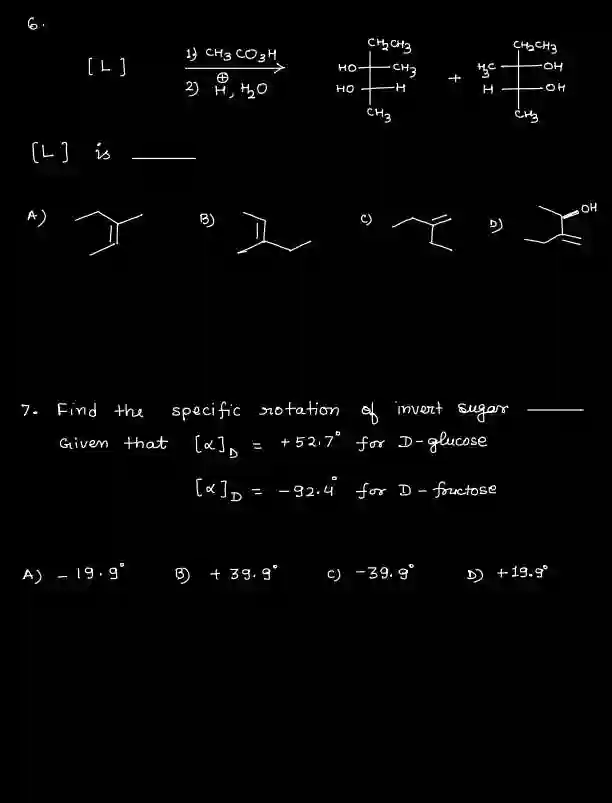 6.
[L] 1) CH3CO3H
2) H⊕, H2O
CH2CH3
HO CH3
HO H
CH3
+
CH2CH3
H3C OH
H OH
CH3
[L] is ____
A) B) C) D) OH
7. Find the specific rotation of invert sugar ____
Given that [α]D = +52.7° for D-glucose
[α]D = -92.4° for D-fructose
A) -19.9° B) +39.9° C) -39.9° D) +19.9°